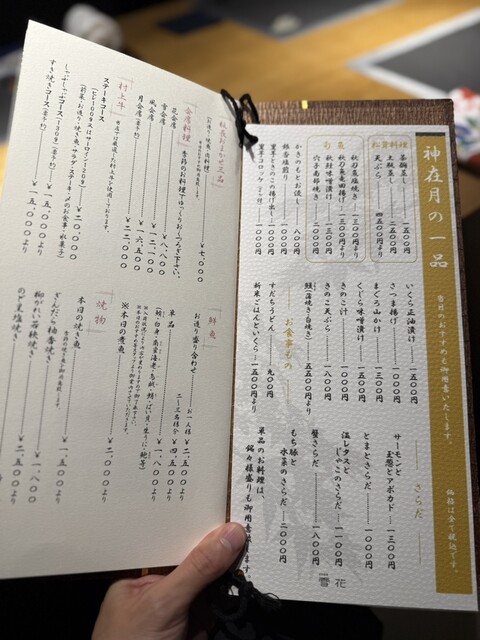 神在月の一品
当月のおすすめを御用意いたします。
価格は全て税込です。
お吸物料理
茶碗蒸し 一五〇〇円
土瓶蒸し 二五〇〇円
天ぷら 四五〇〇円より
旬菜
秋刀魚塩焼き 一三〇〇円より
秋刀魚竜田揚げ 一三〇〇円より
秋鮭味噌漬け 一三〇〇円
穴子南部焼き 二〇〇〇円
かきのもとお浸し 八〇〇円
銀杏塩煎り 一〇〇〇円
里芋ときのこの揚げ出し 一〇〇〇円
里芋コロッケ 一〇〇〇円
いくら正油漬け 一五〇〇円
さつま揚げ 一〇〇〇円
まぐろ山かけ 一三〇〇円
くじら味噌漬け 一五〇〇円
きのこ汁 一〇〇〇円
きのこ天ぷら 一八〇〇円
お食事もの
すだちうどん 九〇〇円
新米ごはんといくら 一五〇〇円より
さらだ
サーモンと
玉葱とアボカド 一三〇〇円
とまとさらだ 一〇〇〇円
温レタスと
じゃこのさらだ 一一〇〇円
蟹さらだ 一八〇〇円
もち豚と
水菜のさらだ 二〇〇〇円
単品のお料理は、
雪花
¥七、〇〇〇
会席料理 季節のお料理でゆっくりおくつろぎ下さい。
花会席 ¥八、八〇〇
雪会席 ¥一二、一〇〇
風会席 ¥一六、五〇〇
月会席(要予約) ¥二二、〇〇〇
村上牛 当店では厳選した村上牛を使用しております。
ステーキコース
(ヒレ100g又はサーロイン120g) ¥二〇、〇〇〇
(前菜・お造り・焼き魚・サラダ・ステーキ・〆のお食事・水菓子)
しゃぶしゃぶコース(130g)(要予約) ¥一五、〇〇〇より
すき焼きコース(要予約) ¥一五、〇〇〇より
鮮魚
お造り盛り合わせ お一人様 ¥二、五〇〇より
二〜三名様分 ¥四、五〇〇より
単品 ¥一、八〇〇より
※本日の煮魚 ¥二、〇〇〇より
焼物
本日の焼き魚 ¥一、五〇〇より
ぎんだら柚香焼き ¥一、八〇〇
柳がれい若狭焼き ¥二、五〇〇より
のど黒塩焼き